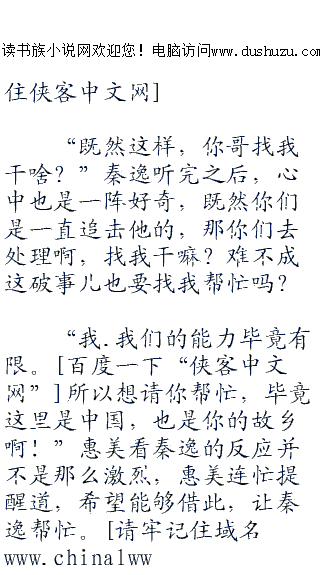 读书族小说网欢迎您！电脑访问www.dushuzu.com
住侠客中文网]
“既然这样，你哥找我
干啥？”秦逸听完之后，心
中也是一阵好奇，既然你们
是一直追击他的，那你们去
处理啊，找我干嘛？难不成
这破事儿也要找我帮忙吗？
“我.我们的能力毕竟有
限。[百度一下“侠客中文
网”]所以想请你帮忙，毕竟
这里是中国，也是你的故乡
啊！”惠美看秦逸的反应并
不是那么激烈，惠美连忙提
醒道，希望能够借此，让秦
逸帮忙。[请牢记住域名
www.china1ww